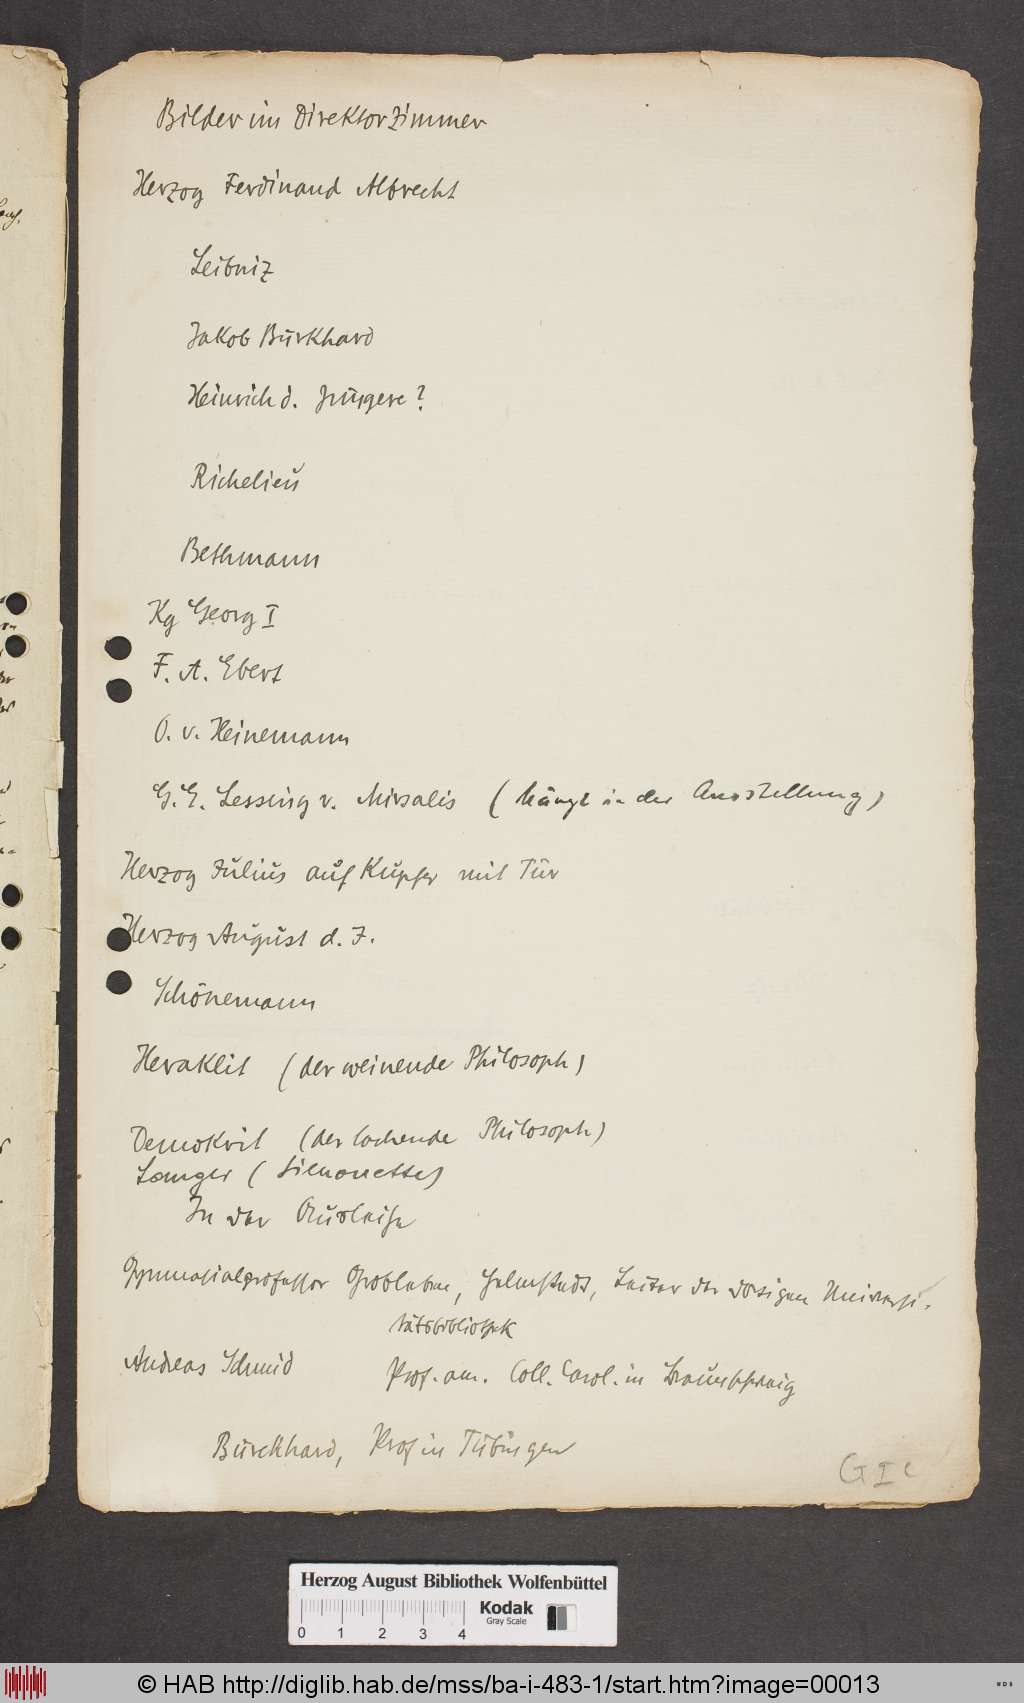 Bilder im Direktorzimmer
Herzog Ferdinand Albrecht
Leibniz
Jakob Burkhard
Heinrich d. Jüngere?
Richelieu
Bethmann
Kg Georg I
F. A. Ebert
O. v. Heinemann
G. E. Lessing v. Mirsalis (hängt in der Ausstellung)
Herzog Julius auf Kupfer mit Tür
Herzog August d. J.
Schönemann
Heraklit (der weinende Philosoph)
Demokrit (der lachende Philosoph)
Langer (Silhouette)
In der Ausleihe
Gymnasialprofessor Helmstedt, Leiter der dortigen Universi-
tätsbibliothek
Andreas Schmid Prof. am. Coll. Carol. in Braunschweig
Burckhard, Prof in Tübingen
G I c
Herzog August Bibliothek Wolfenbüttel
Kodak
Gray Scale
0 1 2 3 4
© HAB http://diglib.hab.de/mss/ba-i-483-1/start.htm?image=00013